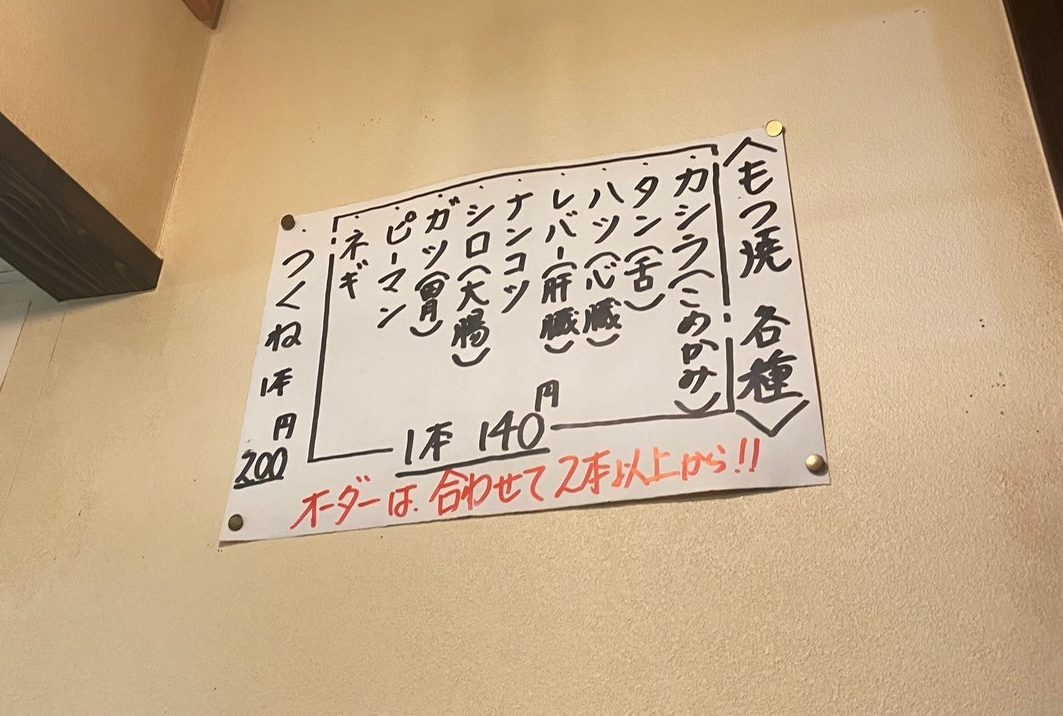 〈もつ焼 各種〉
・カシラ(こめかみ)
・タン(舌)
・ハツ(心臓)
・レバー(肝臓)
・ナンコツ
・シロ(大腸)
・ガツ(胃)
・ピーマン
・ネギ
1本 140円
・つくね 1本 200円
オーダーは 合わせて2本以上から!!